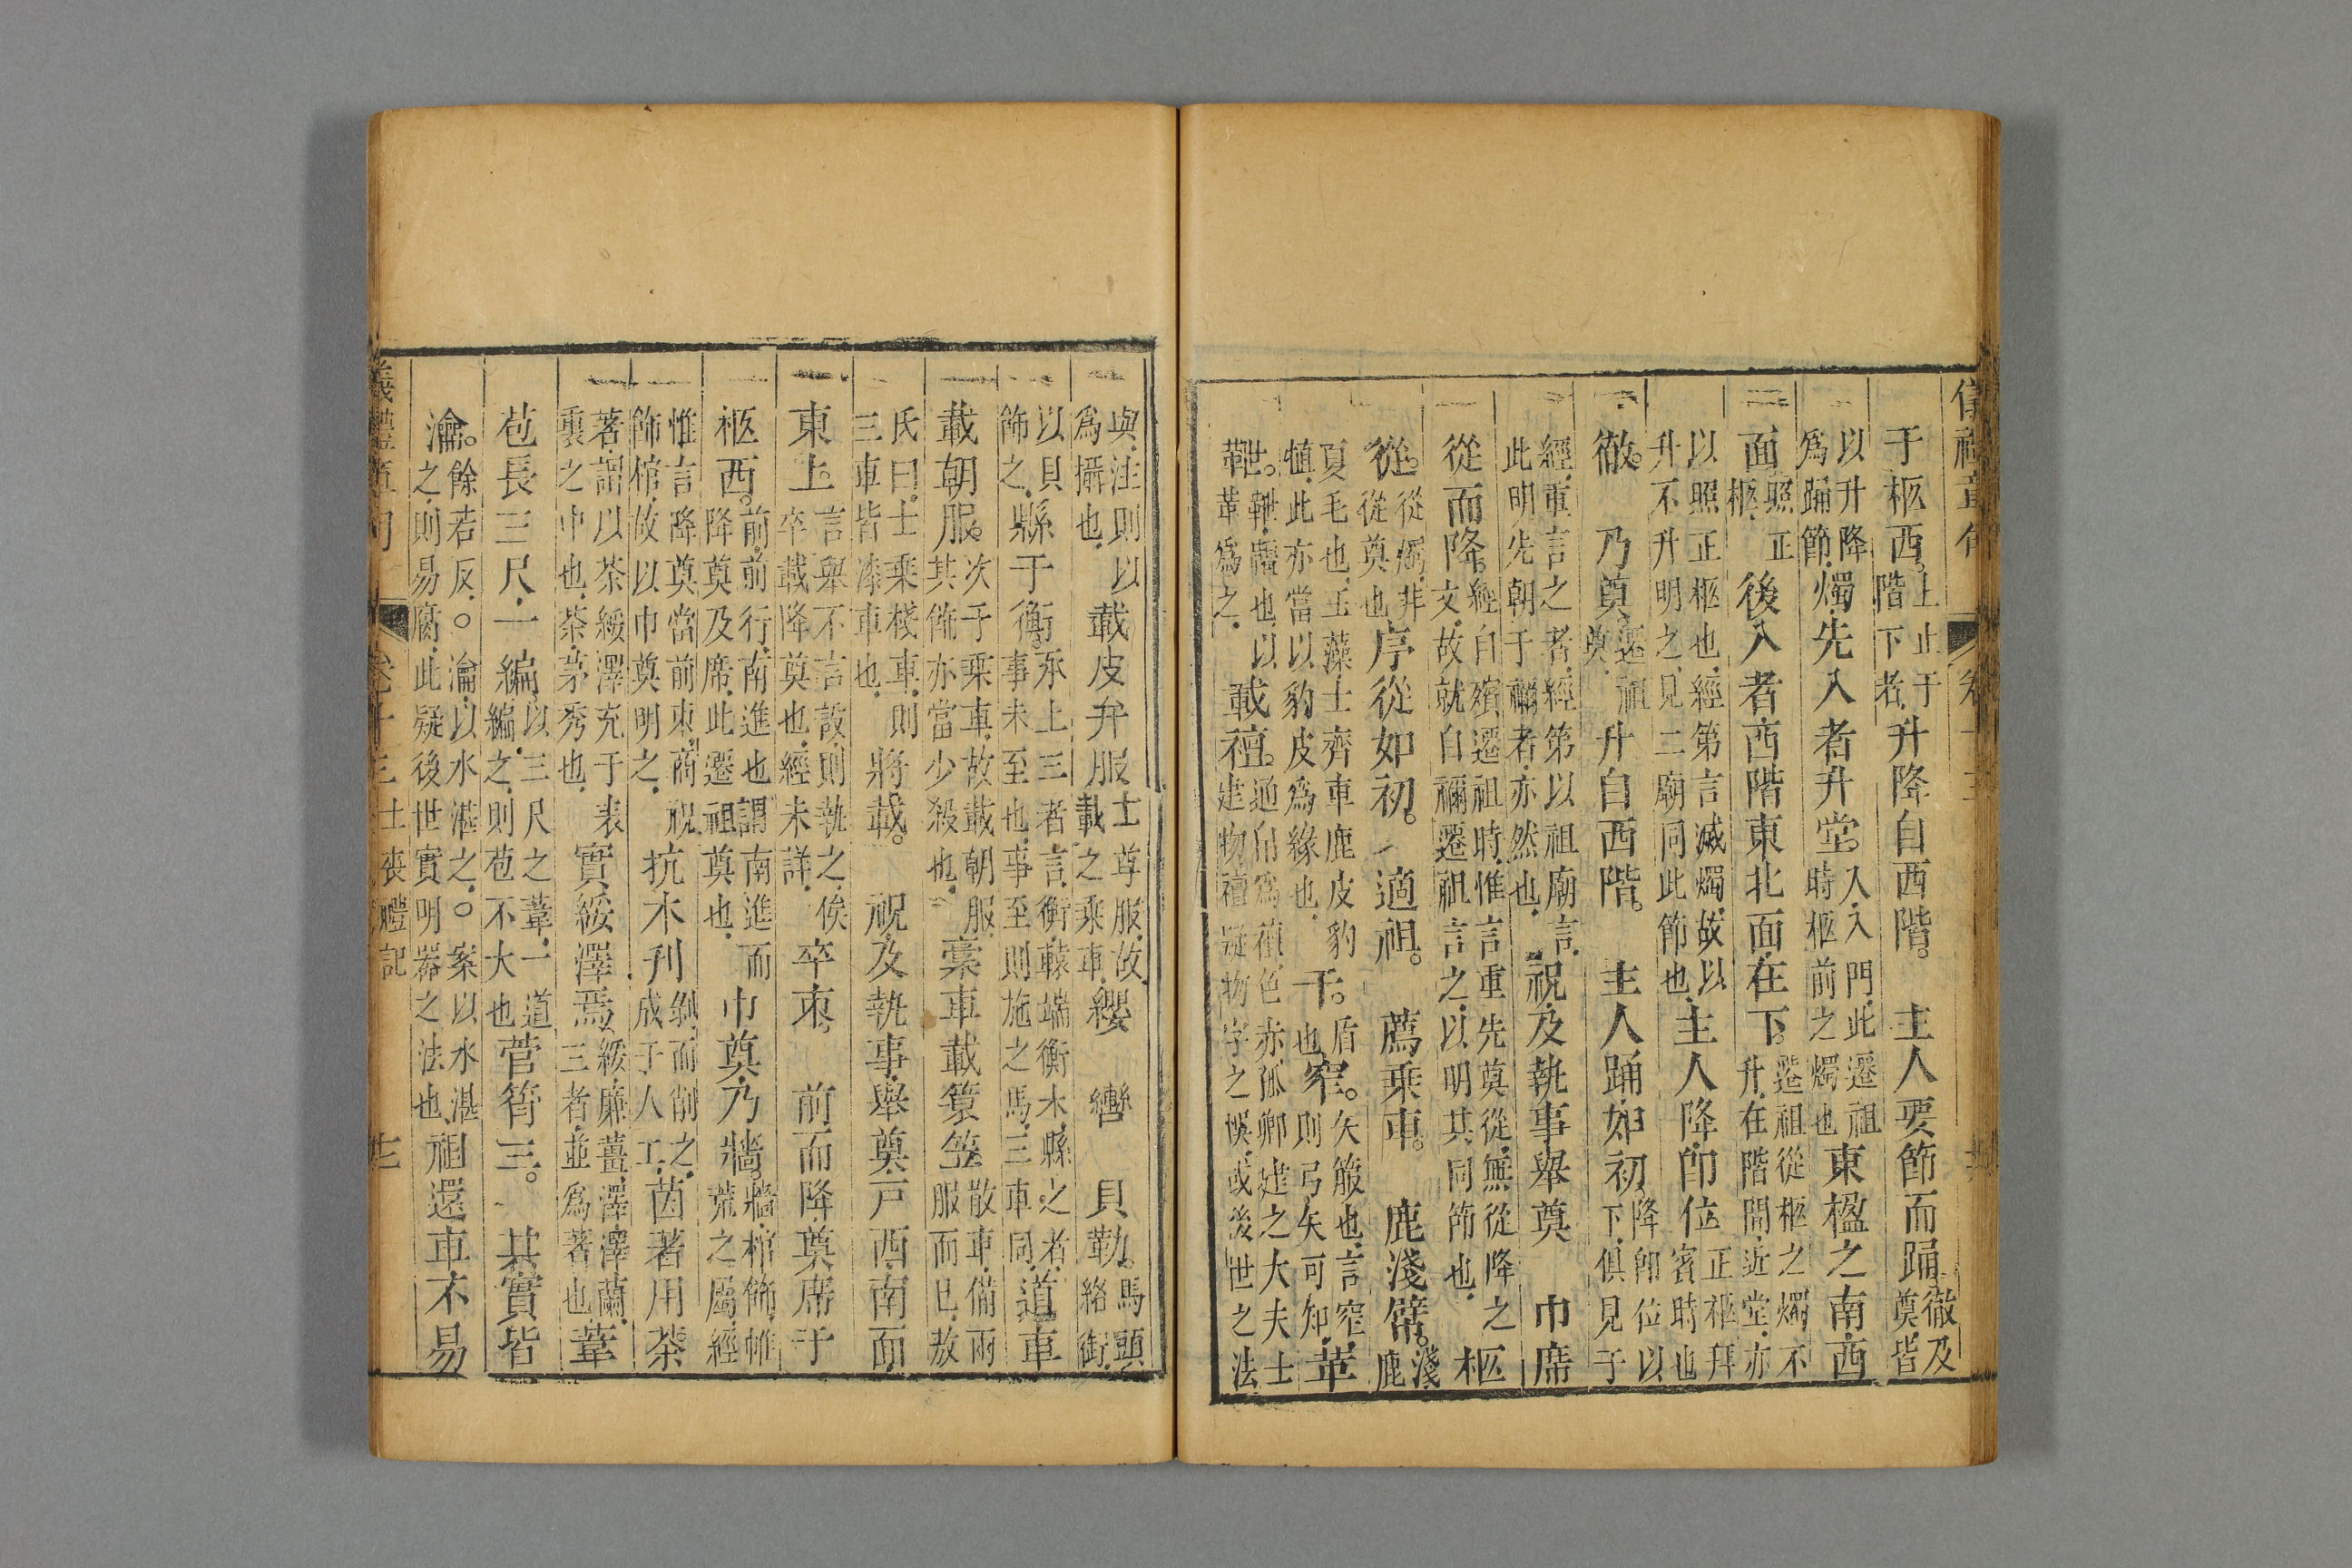 儀禮章句 卷十三
于柩西。上止于階下者升降自西階。 主人要節而踊徹及奠皆
以升降爲踊節燭先入者升堂。入入門此遷祖時柩前之燭也東楹之南西
面照正柩後入者西階東北面在下。遷祖從柩之燭不升在階間近堂亦
以照正柩也經第言滅燭故以升不升明之見二廟同此節也主人降卽位正柩拜賓時也
徹。 乃奠遷祖奠升自西階。 主人踊如初降卽位以下俱見于
經重言之者經第以祖廟言此明先朝于禰者亦然也祝及執事舉奠 巾席
從而降。經自殯遷祖時惟言重先奠從無從降之文故就自禰遷祖言之以明其同節也柩
從。從燭非從奠也序從如初。 適祖。 薦乘車。 鹿淺幦。淺鹿
夏毛也玉藻士齊車鹿皮豹犆此亦當以豹皮爲緣也干。盾也窄。矢箙也言窄則弓矢可知革
靾。靾韁也以革爲之載旜。通帛爲旜色赤孤卿建之大夫士建物旜疑物字之悞或後世之法
與注則以爲攝也載皮弁服士尊服故載之乘車纓 轡 貝勒。馬頭絡銜
以貝飾之縣于衡。承上三者言衡轅端衡木縣之者事未至也事至則施之馬三車同道車
載朝服。次于乘車故載朝服其飾亦當少殺也稾車載簑笠散車備雨服而已敖
氏曰士乘棧車則三車皆漆車也將載。 祝及執事舉奠戸西南面
東上言舉不言設則執之俟卒載降奠也經未詳卒束。 前而降奠席于
柩西。前前行南進也謂南進而降奠及席此遷祖奠也巾奠乃牆。牆棺飾帷荒之屬經
惟言降奠當前束商祝飾棺故以巾奠明之抗木刋剝而削之成于人工茵著用荼
著謂以荼綏澤充于表裏之中也荼茅秀也實綏澤焉綏廉薑澤澤蘭三者並爲著也葦
苞長三尺一編以三尺之葦一道編之則苞不大也菅筲三。 其實皆
瀹。餘若反。○瀹以水湛之。○案以水湛之則易腐此疑後世實明器之法也祖還車不易
儀禮章句 卷十三 士喪禮記